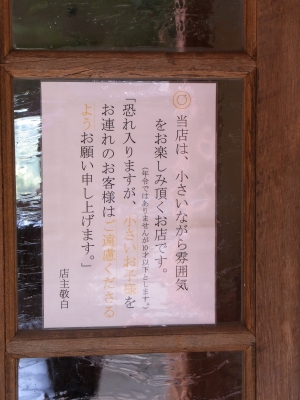 ◎当店は、小さいながら雰囲気
をお楽しみ頂くお店です。
(年令ではありませんが10才以下とします。)
「恐れ入りますが、小さいお子様を
お連れのお客様はご遠慮くださる
ようお願い申し上げます。」
店主敬白